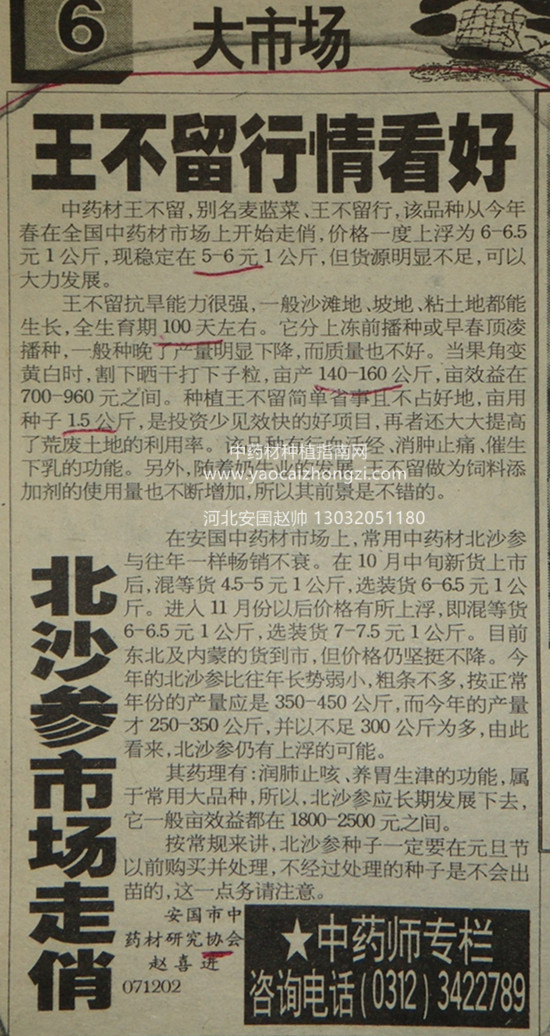 6
大市场
王不留行情看好
中药材王不留,别名麦蓝菜、王不留行,该品种从今年
春在全国中药材市场上开始走俏,价格一度上浮为 6-6.5
元 1 公斤,现稳定在 5-6 元 1 公斤,但货源明显不足,可以
大力发展。
王不留抗旱能力很强,一般沙滩地、坡地、粘土地都能
生长,全生育期 100 天左右。它分上冻前播种或早春顶凌
播种,一般种晚了产量明显下降,而质量也不好。当果角变
黄白时,割下晒干打下子粒,亩产 140-160 公斤,亩效益在
700-960 元之间。种植王不留简单省事且不占好地,亩用
种子 1.5 公斤,是投资少见效快的好项目,再者还大大提高
了荒废土地的利用率。该品种有行血活经、消肿止痛、催生
下乳的功能。另外,随着奶牛业的发展,王不留做为饲料添
加剂的使用量也不断增加,所以其前景是不错的。
中药材种植指南网
www.yaocaizhongzi.com
河北安国赵帅 13032051180
北沙参市场走俏
在安国中药材市场上,常用中药材北沙参
与往年一样畅销不衰。在 10 月中旬新货上市
后,混等货 4.5-5 元 1 公斤,选装货 6-6.5 元 1 公
斤。进入 11 月份以后价格有所上浮,即混等货
6-6.5 元 1 公斤,选装货 7-7.5 元 1 公斤。目前
东北及内蒙的货到市,但价格仍坚挺不降。今
年的北沙参比往年长势弱小,粗条不多,按正常
年份的产量应是 350-450 公斤,而今年的产量
才 250-350 公斤,并以不足 300 公斤为多,由此
看来,北沙参仍有上浮的可能。
其药理有:润肺止咳、养胃生津的功能,属
于常用大品种,所以,北沙参应长期发展下去,
它一般亩效益都在 1800-2500 元之间。
按常规来讲,北沙参种子一定要在元旦节
以前购买并处理,不经过处理的种子是不会出
苗的,这一点务请注意。
安国市中
药材研究协会
赵喜进
071202
★中药师专栏
咨询电话(0312)3422789